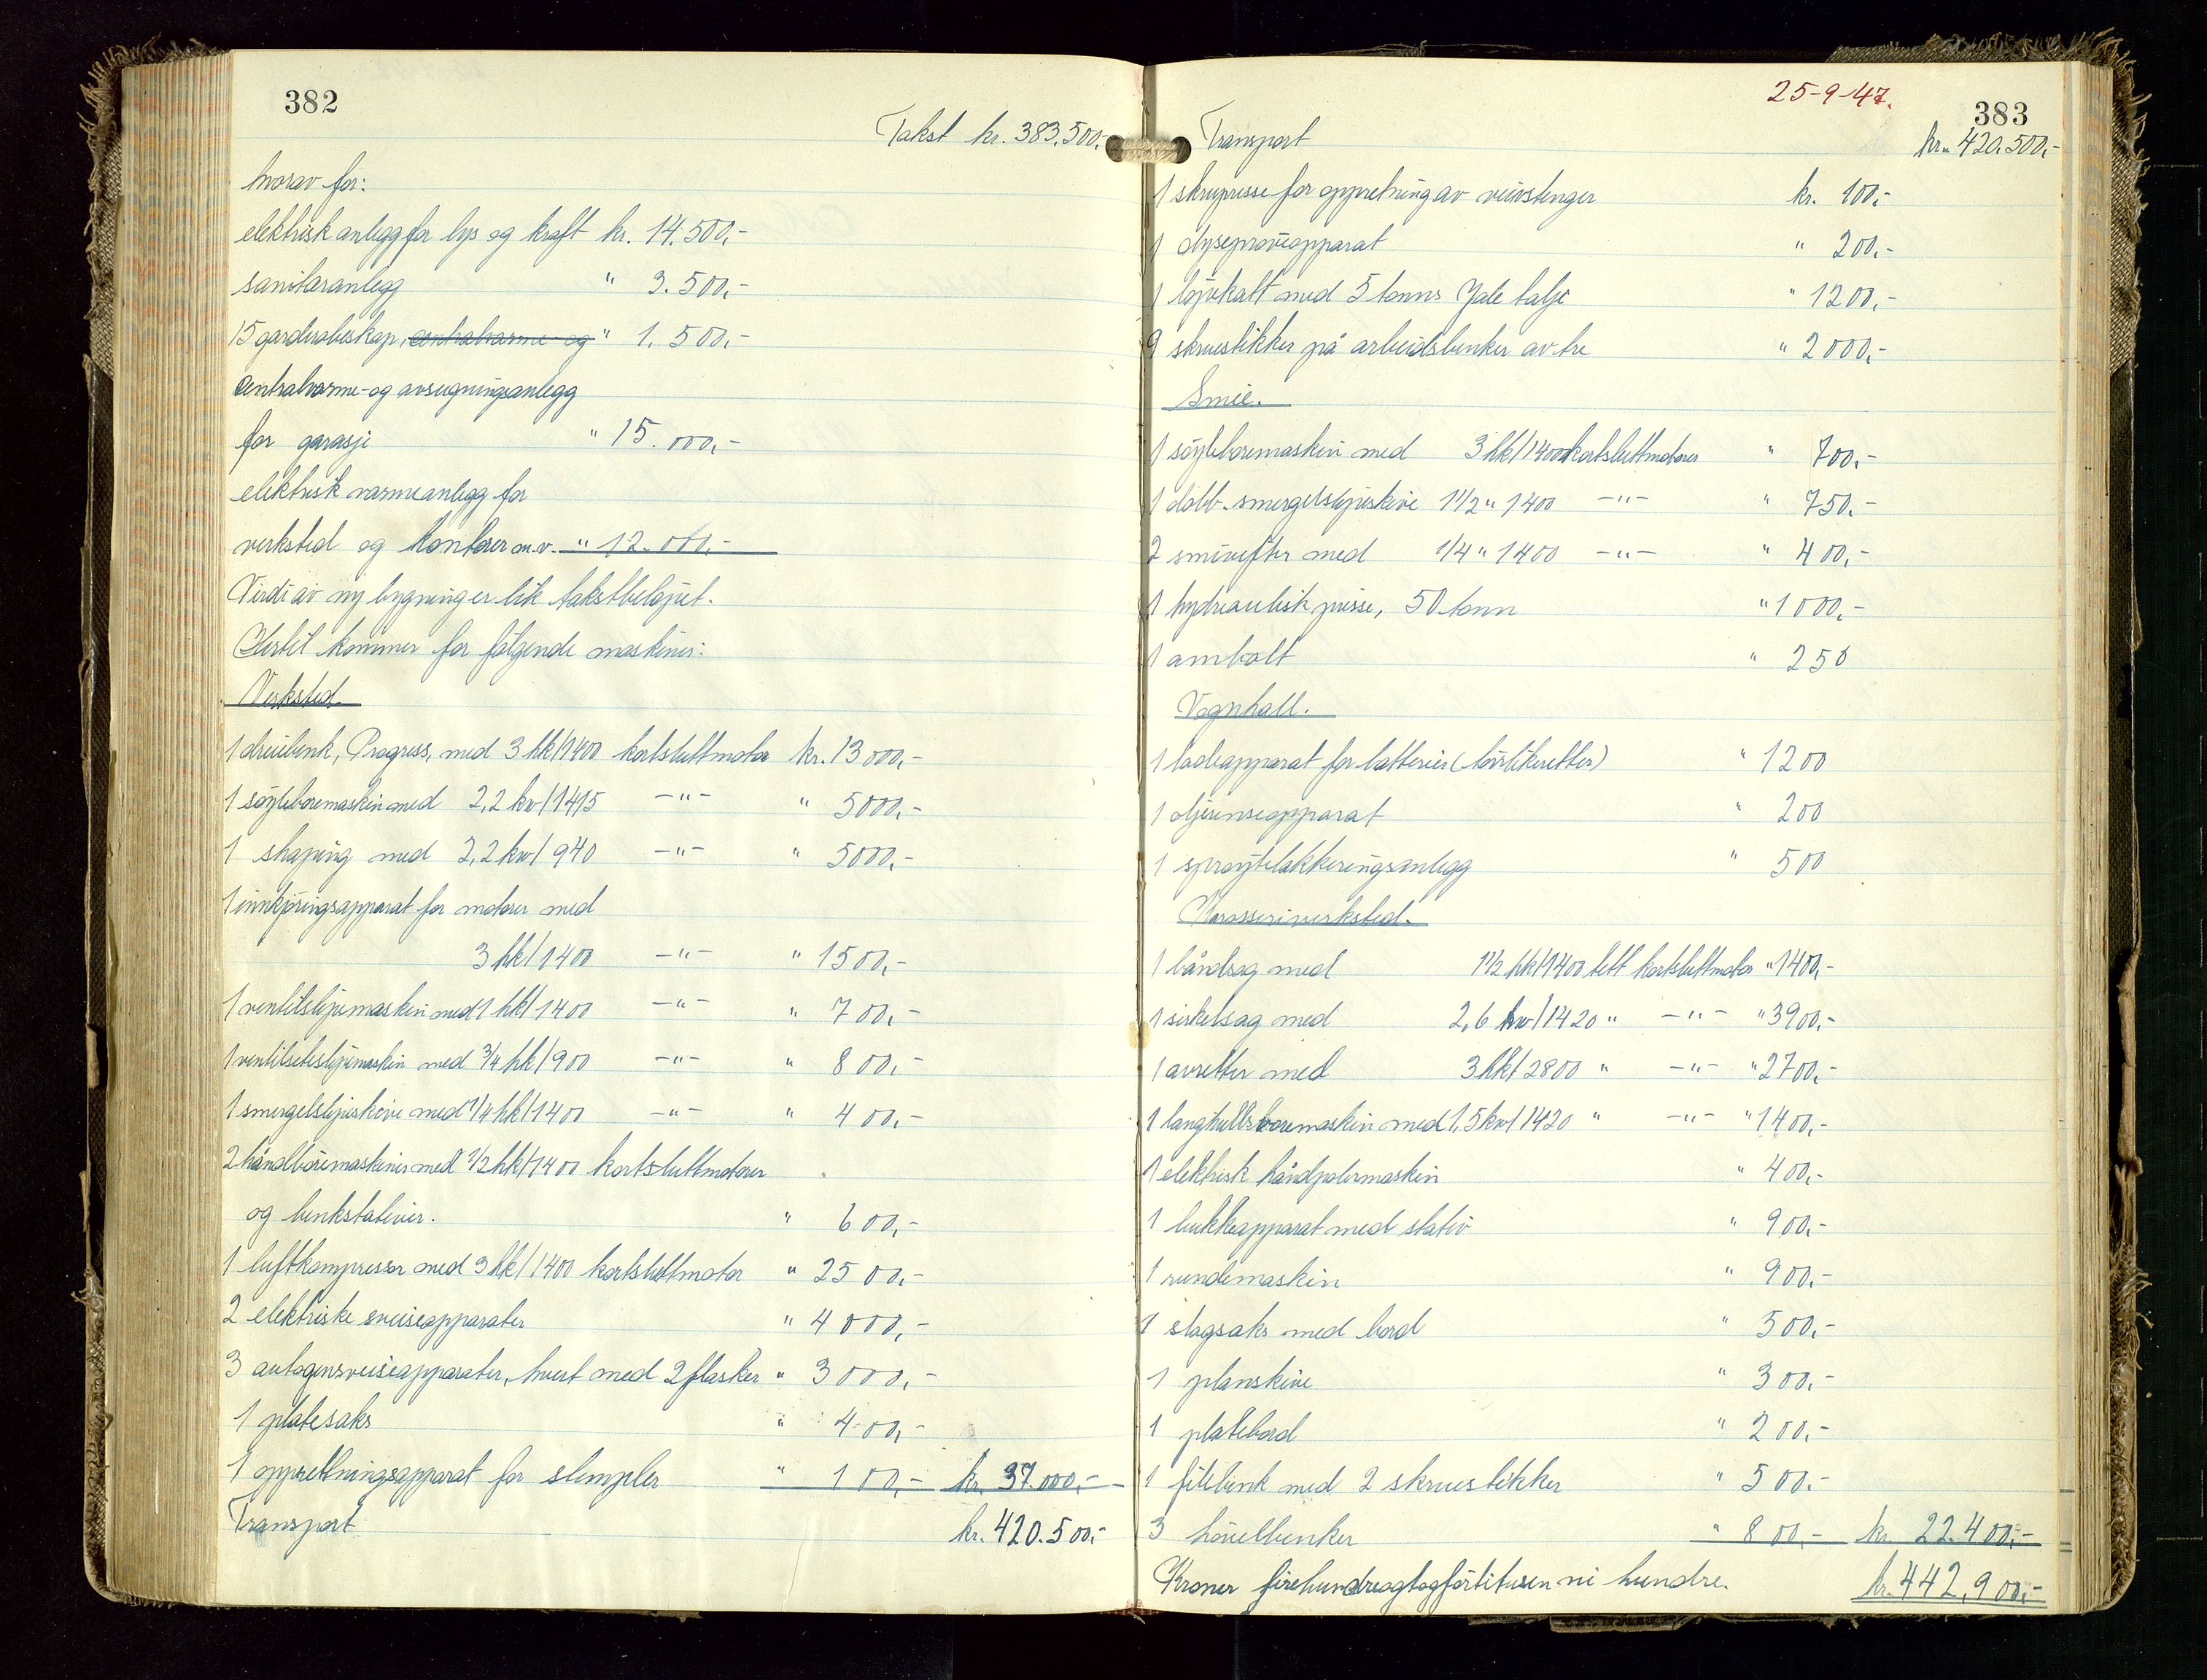 382
Takst kr. 383.500,-
hvorav for:
elektrisk anlegg for lys og kraft kr. 14.500,-
sanitæranlegg " 3.500,-
15 garderobeskap, centralvarme- og " 1.500,-
Centralvarme- og avsugningsanlegg
for garasje " 15.000,-
elektrisk varmeanlegg for
verksted og kontorer m.v. " 12.000,-
Verdi av ny bygning er lik takstbeløpet.
Hertil kommer for følgende maskiner:
Verksted.
1 dreiebenk, Progress, med 3 hk/1400 kortsluttmotor kr. 13000,-
1 søyleboremaskin med 2,2 kw/1415 -"- " 5000,-
1 shaping med 2,2 kw/940 -"- " 5000,-
1 innkjøringsapparat for motorer med
3 hk/1400 -"- " 1500,-
1 ventilslipemaskin med 1 hk/1400 -"- " 700,-
1 ventilseteslipemaskin med 3/4 hk/900 -"- " 800,-
1 smergelslipeskive med 1/4 hk/1400 -"- " 400,-
2 håndboremaskiner med 1/2 hk/1400 kortsluttmotorer
og benkstativer. " 600,-
1 luftkompressor med 3 hk/1400 kortsluttmotor " 2500,-
2 elektriske sveiseapparater " 4000,-
3 autogensveiseapparater, hvert med 2 flasker " 3000,-
1 platesaks " 400,-
1 opprettningsapparat for stempler " 100,- kr. 37.000,-
Transport kr. 420.500,-
25-9-47.
383
Transport kr. 420.500,-
1 skrupresse for oppretning av veivstenger kr. 100,-
1 dyseprøveapparat " 200,-
1 løpekatt med 5 tonns Yale talje " 1200,-
9 skruestikker på arbeidsbenker av tre " 2000,-
Smie.
1 søyleboremaskin med 3 hk/1400 kortsluttmotorer " 700,-
1 dobb. smergelslipeskive 1 1/2 " 1400 -"- " 750,-
2 smivifter med 1/4 " 1400 -"- " 400,-
1 hydraulisk presse, 50 tonn " 1000,-
1 ambolt " 250
Vognhall.
1 ladeapparat for batterier (tørrlikeretter) " 1200
1 oljerenseapparat " 200
1 sprøytelakkeringsanlegg " 500
Karosseriverksted.
1 båndsag med 1 1/2 hk/1400 tett kortsluttmotor " 1400,-
1 sirkelsag med 2,6 kw/1420 " -"- " 3900,-
1 avretter med 3 hk/2800 " -"- " 2700,-
1 langhullsboremaskin med 1,5 kw/1420 " -"- " 1400,-
1 elektrisk håndpolermaskin " 400,-
1 bukkeapparat med stativ " 900,-
1 rundemaskin " 900,-
1 slagsaks med bord " 500,-
1 planskive " 300,-
1 platebord " 200,-
1 filebenk med 2 skruestikker " 500.-
3 høvelbenker " 800,- kr. 22.400,-
Kroner firehundreogtogførtitusen ni hundre. kr. 442,900,-